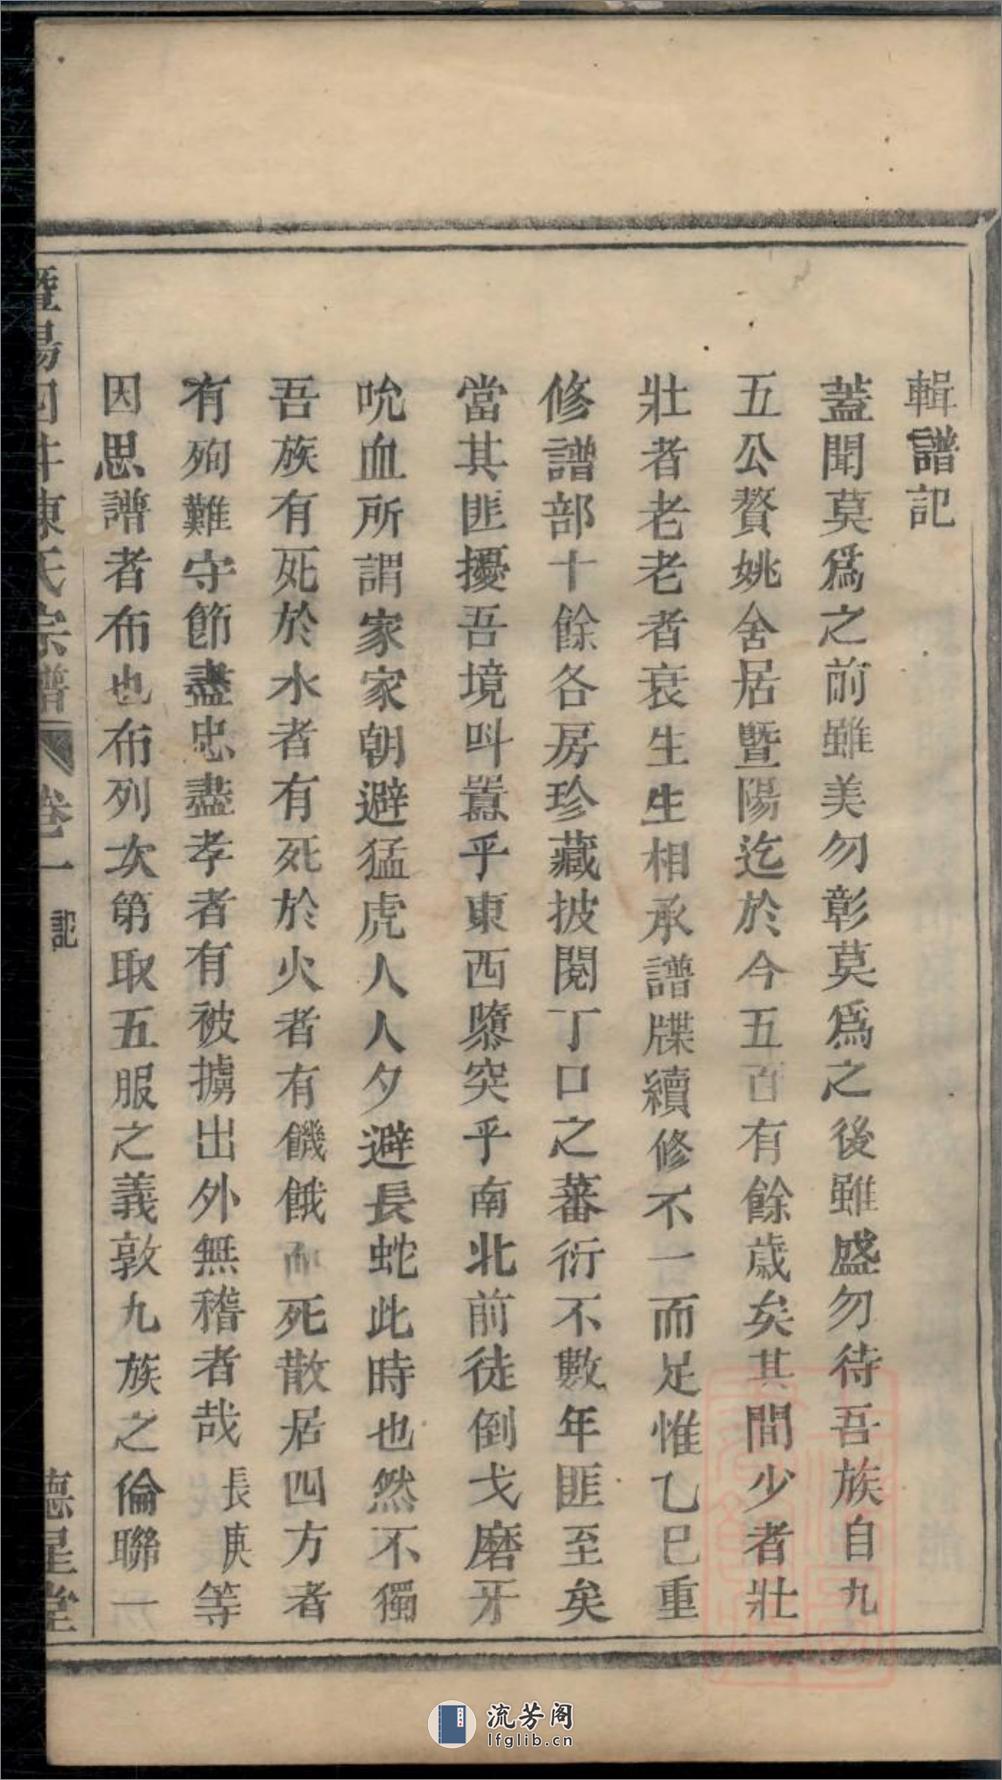 輯譜記
蓋聞莫爲之前雖美勿彰莫爲之後雖盛勿待吾族自九
五公贅姚舍居暨陽迄於今五百有餘歲矣其間少者壯
壯者老老者衰生生相承譜牒續修不一而足惟乙巳重
修譜部十餘各房珍藏披閱丁口之蕃衍不數年匪至矣
當其匪擾吾境叫囂乎東西隳突乎南北前徒倒戈磨牙
吮血所謂家家朝避猛虎人人夕避長蛇此時也然不獨
吾族有死於水者有死於火者有饑餓而死散居四方者
有殉難守節盡忠盡孝者有被擄出外無稽者哉長庚等
因思譜者布也布列次第取五服之義敦九族之倫聯一
暨陽 陳氏宗譜 卷一 記 德星堂
流芳阁
lfglib.cn